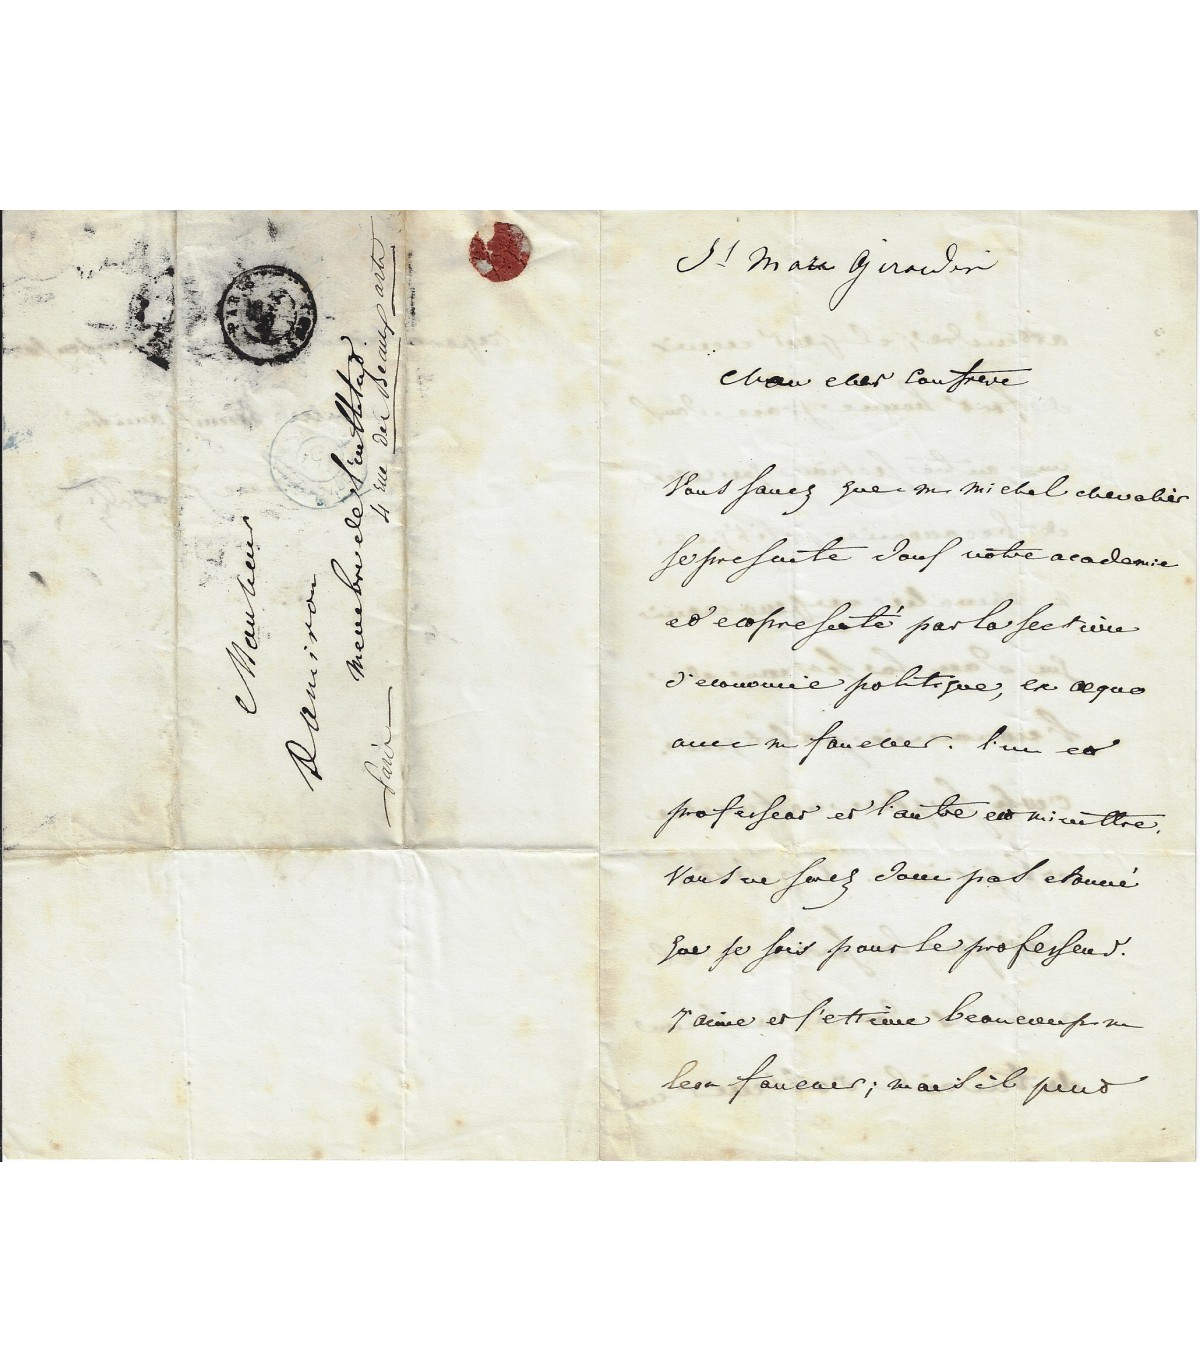 Monsieur
Damiron
membre de l'institut
4 rue des Beaux arts
Paris
PARIS
St Marc Girardin
Mon cher confrere
Vous savez que m michel chevalier
se presente dans votre academie
est et presenté par la section
d'economie politique, ex aequo
avec m faucher. l'un est
professeur et l'autre est ministre.
Vous ne serez donc pas etonné
que je sois pour le professeur.
J'aime et j'estime beaucoup m
leon faucher; mais il peut